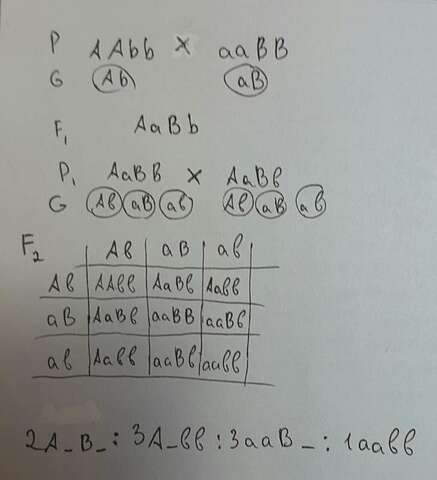 P AAbb × aaBB
G Ab aB
F₁ AaBb
P₁ AaBB × AaBb
G Ab aB ab Ab aB ab
F₂ Ab aB ab
Ab AAbb AaBb Aabb
aB AaBb aaBB aaBb
ab Aabb aaBb aabb
2A_B_ : 3A_bb : 3aaB_ : 1aabb